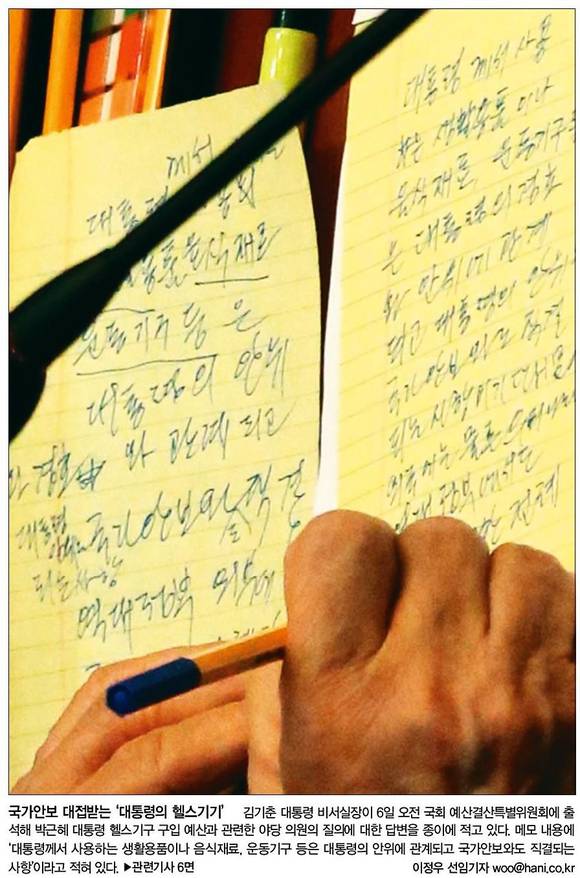 께서
대통령
용품 음식재료
운동기구 등 은
대통령의 안위
와 관계되고
와 경호
국가안보와 직결
대통령
되는 사항
역대 정부
대통령께서 사용
하는 생활용품이나
음식재료, 운동기구
은 대통령의 경호
및 안위에 관계
되고 대통령의 안위
국가안보와도 직결
되는 사항이기 때문
전례
국가안보 대접받는 ‘대통령의 헬스기기’ 김기춘 대통령 비서실장이 6일 오전 국회 예산결산특별위원회에 출
석해 박근혜 대통령 헬스기구 구입 예산과 관련한 야당 의원의 질의에 대한 답변을 종이에 적고 있다. 메모 내용에
‘대통령께서 사용하는 생활용품이나 음식재료, 운동기구 등은 대통령의 안위에 관계되고 국가안보와도 직결되는
사항’이라고 적혀 있다. ▶관련기사 6면 이정우 선임기자 woo@hani.co.kr